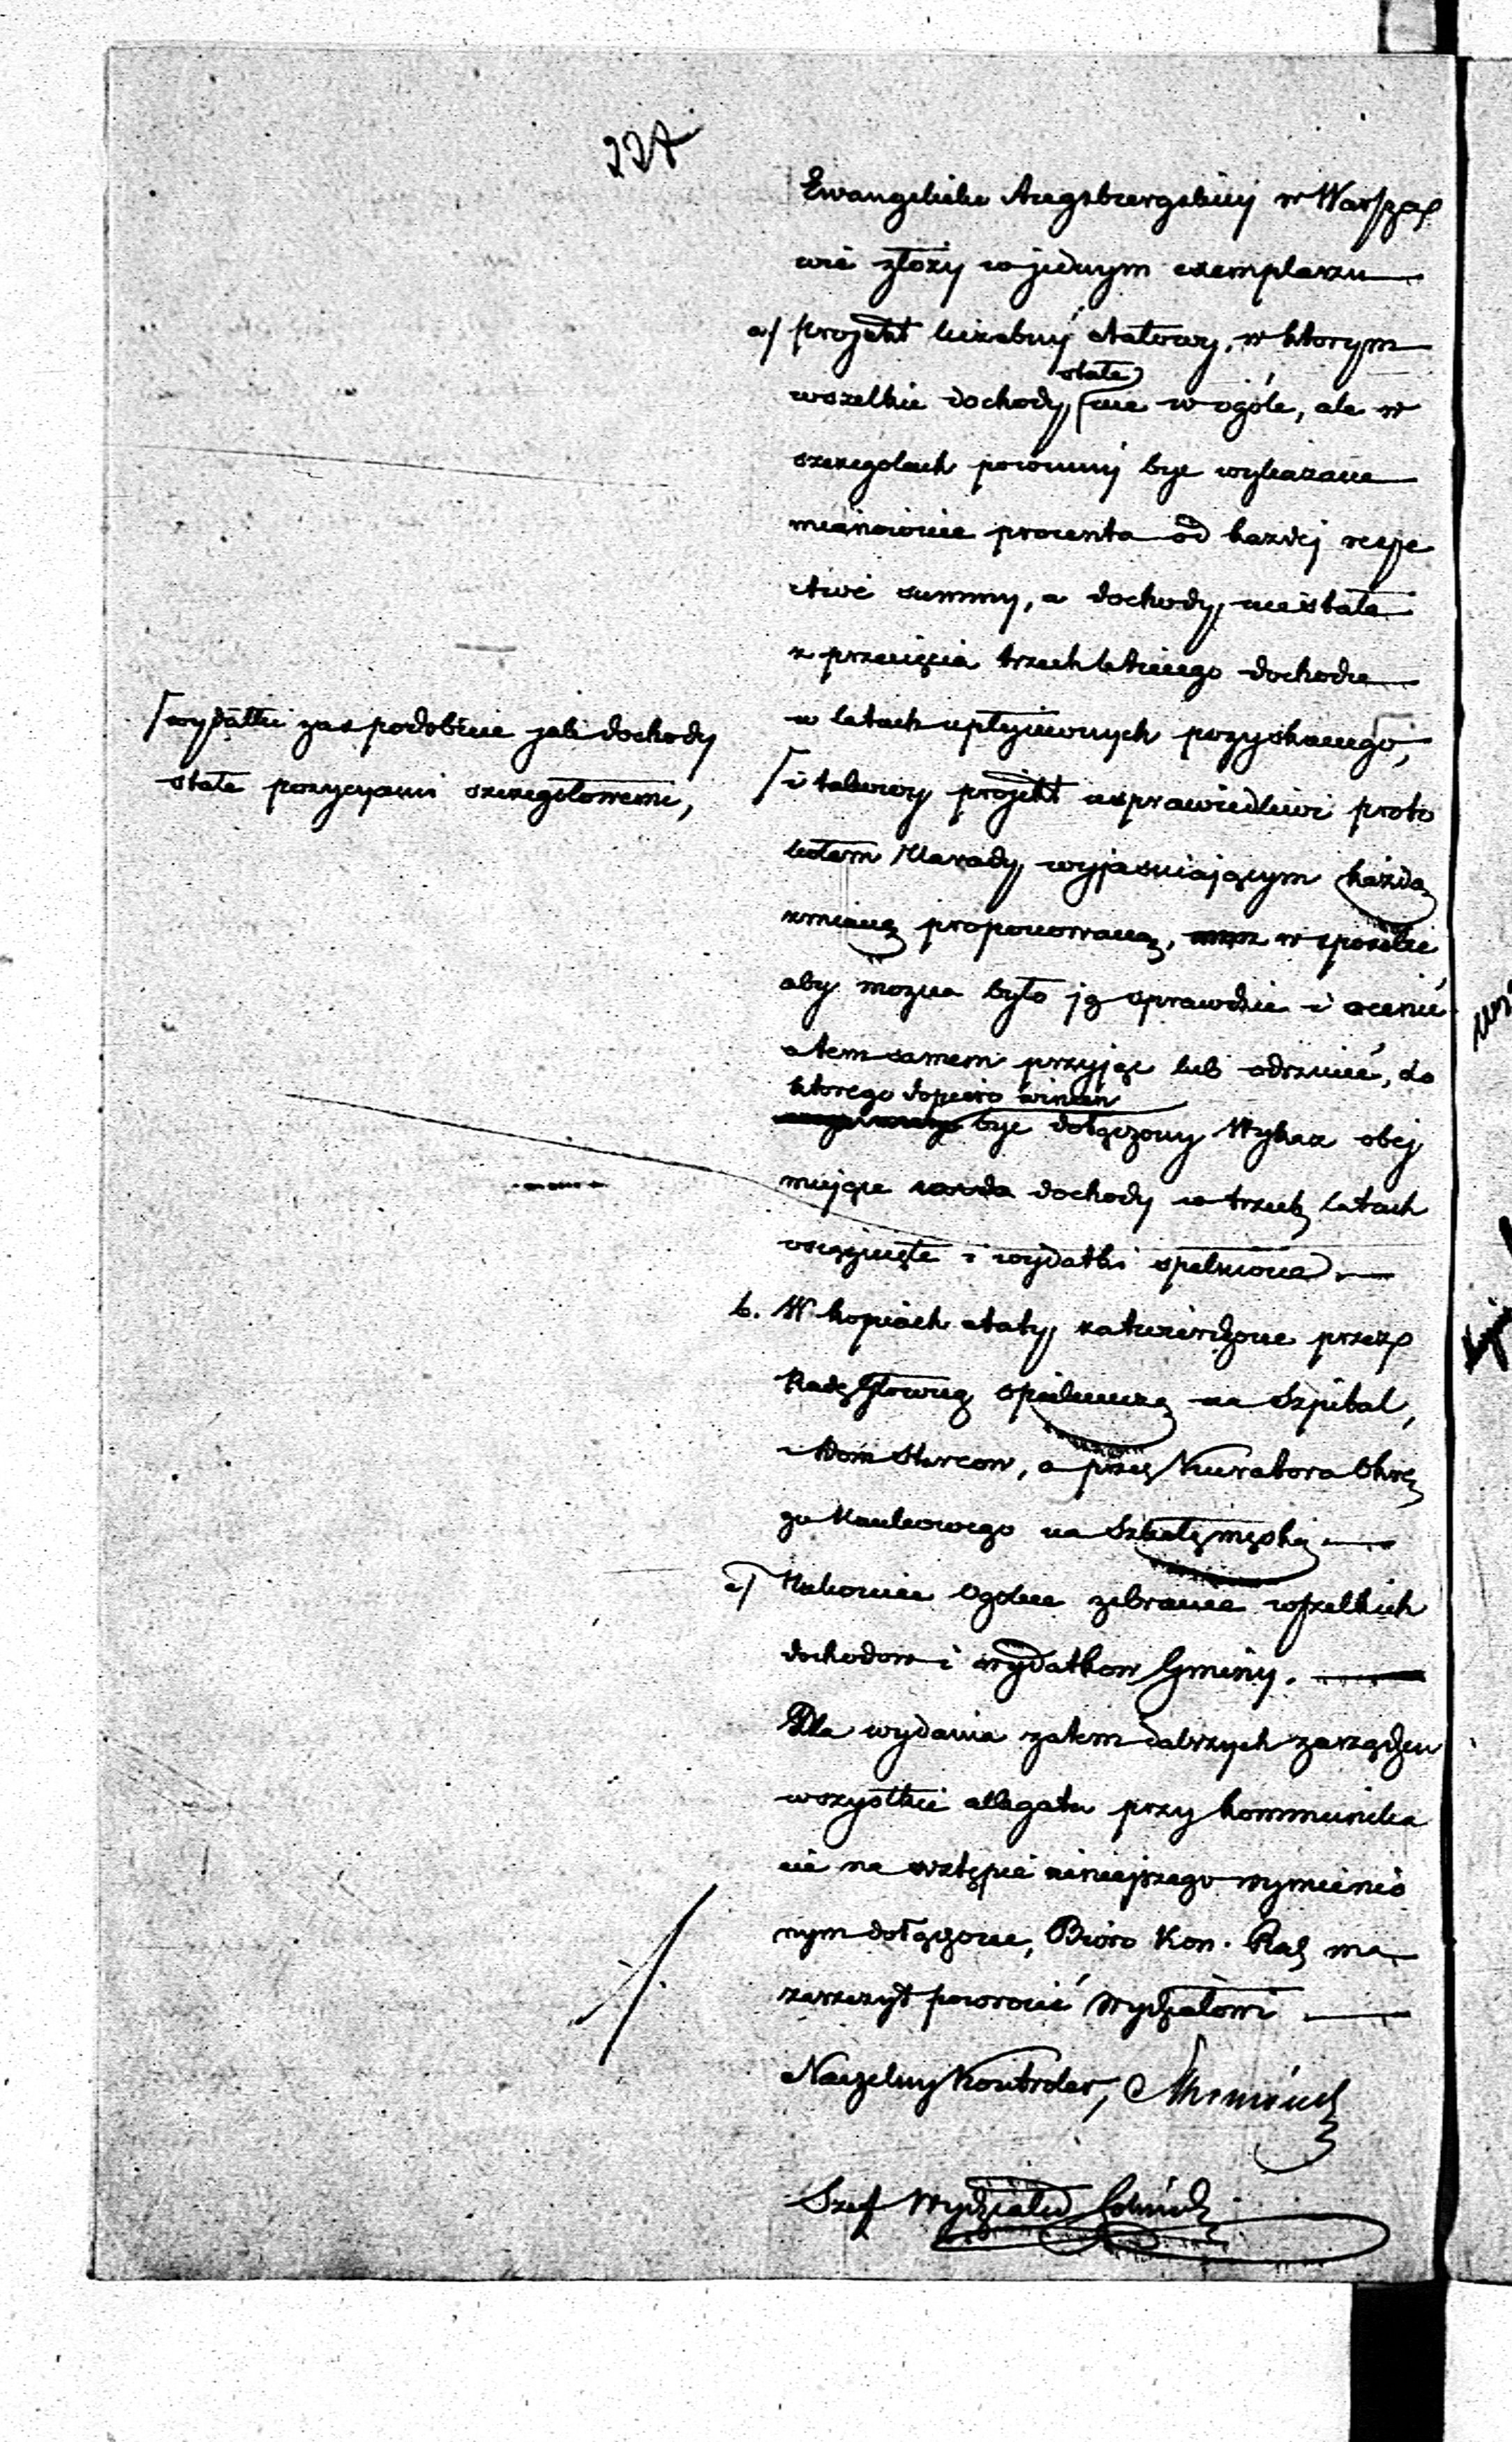 227
Ewangelicko Augsburgskiej w Warsza
wie złoży w jednym exemplarzu
a/ projekt liczebny etatowy, w ktorym
stałe
wszelkie dochody, nie w ogóle, ale w
szczegolach powinny byc wykazane
mianowicie procenta od kazdej respe
ctive summy, a dochody niestałe
z przecięcia trzechletniego dochodu
w latach upłynionych pozyskanego,
wydatki zas podobnie jak dochody
stałe pozycyami szczegołowemi,
i takowy projekt usprawiedliwi proto
kołem Narady wyjasniającym każdą
zmianę proponowaną, w sposobie
aby mozna było ją sprawdzic i ocenić
a tem samem przyjąc lub odrzucić, do
ktorego dopiero winien
byc dołączony Wykaz obej
mujące dochody w trzech latach
osiągnięte i wydatki spełnione.
b. W kopiach etaty zatwierdzone przez
Radę Głowną Opiekunczą na Szpital,
i Dom Starcow, a przez Kuratora Okrę
gu Naukowego na Szkołę męską
c/ Nakoniec Ogolne zebranie wszelkich
dochodow i wydatkow Gminy.
Dla wydania zatem dalszych zarządzen
wszystkie allegata przy kommunika
cie na wstępie niniejszego wymienio
nym dołączone, Bióro Kon. Rad ma
zaszczyt powrocić Wydziałowi
Naczelny Kontroler,
Szef Wydziału